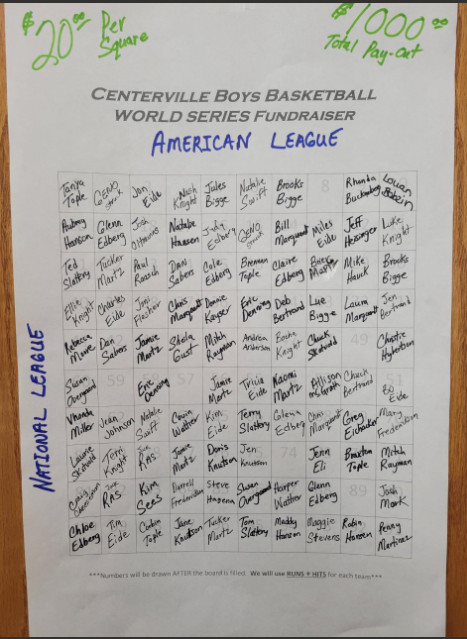 $20.00 Per Square
$1000.00
Total Pay-out
CENTERVILLE BOYS BASKETBALL
WORLD SERIES FUNDRAISER
AMERICAN LEAGUE
NATIONAL LEAGUE
Tanya Tople GENO Jon Eide Nash Knight Jules Bigge Natalie Swift Brooks Bigge 8 Rhonda Buckneberg Logan
Aubrey Hanson Glenn Edberg Josh Natalie Hansen Judy Edberg GENO Bill Margaret Miles Eide Jeff Heisinger Luke Knight
Ted Slattery Tucker Martz Paul Roasch Dani Sabers Cole Edberg Brennan Tople Claire Edberg Mike Hauk Brooks Bigge
Ellie Knight Charles Eide Joni Fleisher Chris Margaret Donnie Kayser Eric Denning Deb Bertrand Lue Bigge Laura Margaret Jen Bertrand
Rebecca Moore Dan Sabers Jamie Martz Sheila Gust Mitch Rayman Andrea Anderson Knight Chuck Skotvold 49 Christie
Susan Overgaard 59 Eric Denning 57 Jamie Martz Tricia Eide Naomi Martz Allison McGrath Chuck Bertrand 51 Bo Eide
Vhonda Miller Jean Johnson Natalie Swift Watter Kim Eide Terry Slattery Glenn Edberg Chris Margaret Greg Eichacker Mary Frederickson
Laurie Skotvold Terri Knight Jamie Martz Doris Knutson Jen Knutson 74 Jenn Eli Braxton Tople Mitch Rayman
Craig Kim Sees Darrell Frederickson Steve Hagena Susan Overgaard Harper Watter Glenn Edberg 89 Josh Mark
Chloe Edberg Tim Eide Corbin Tople Jane Knutson Tucker Martz Tom Slattery Maddy Hanson Maggie Stevens Robin Hansen Penny Martinez
***Numbers will be drawn AFTER the board is filled. We will use RUNS + HITS for each team***